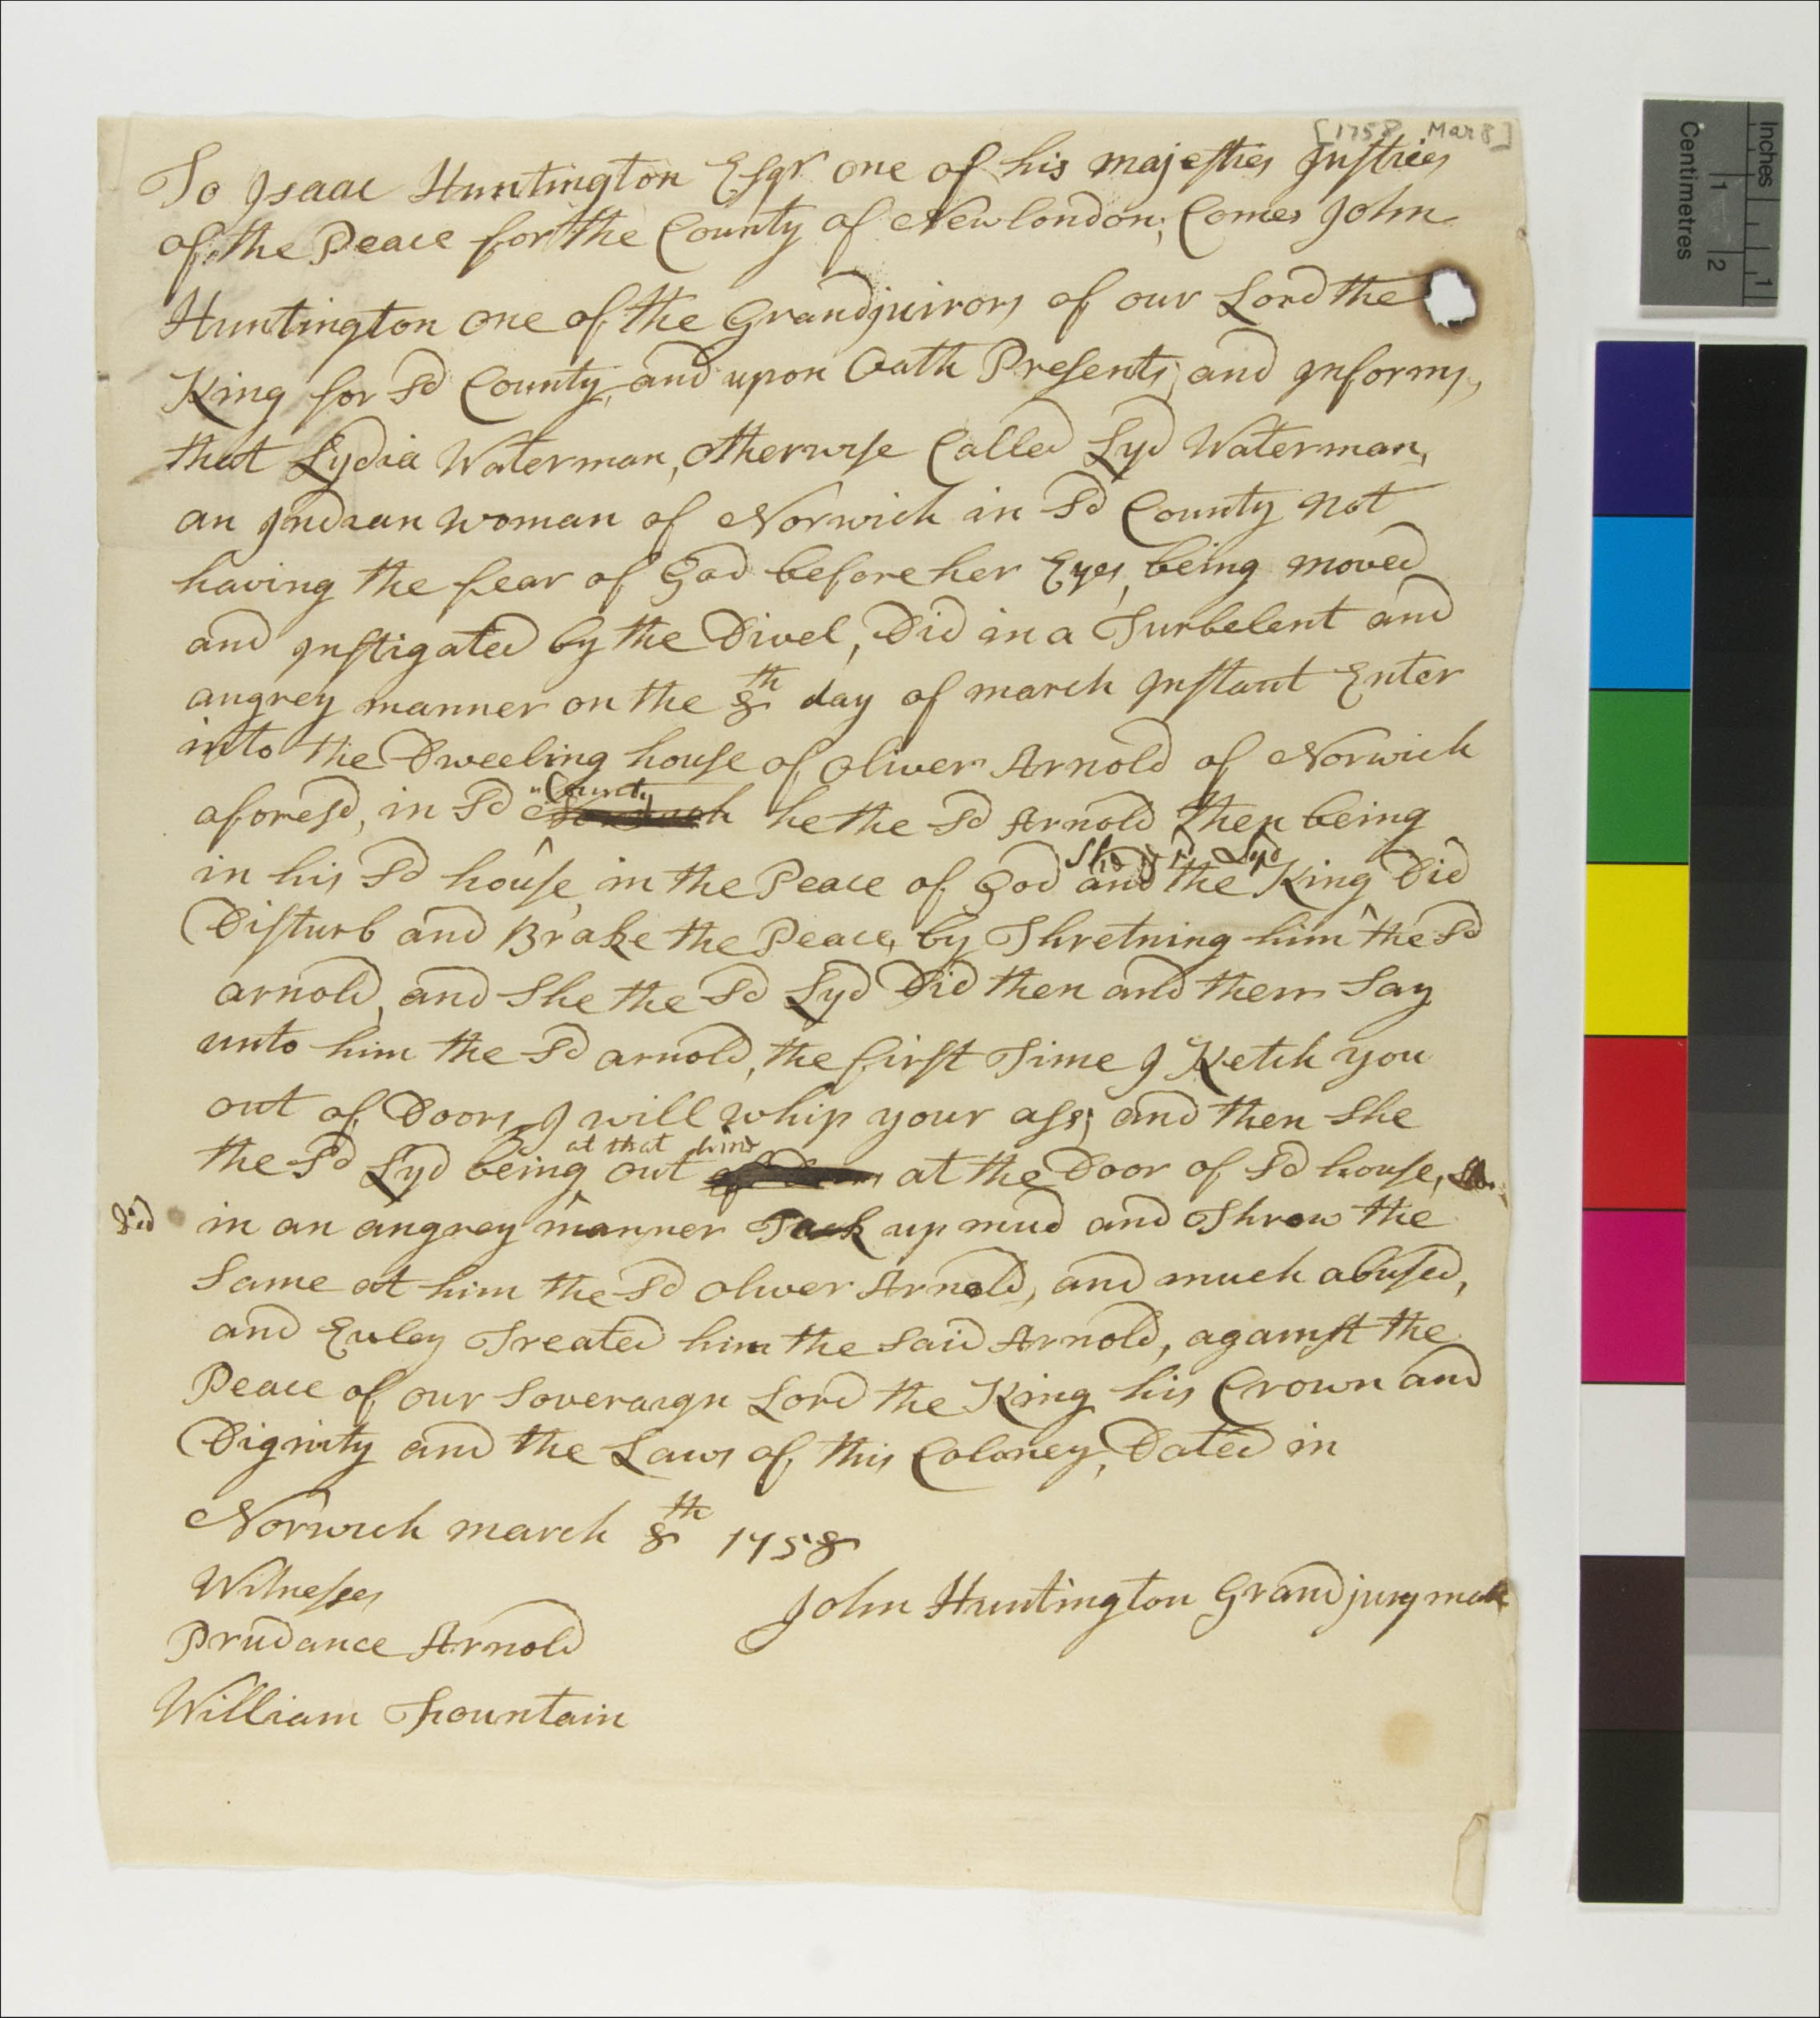 [1758 Mar 8]
To Isaac Huntington Esqr one of his majesties Justices
of the Peace for the County of Newlondon; Comes John
Huntington one of the Grandjurirors of our Lord the
King for Sd County, and upon Oath Presents, and Informs,
that Lydia Waterman, otherwise Called Lyd Waterman,
an Indian woman of Norwich in Sd County not
having the fear of God before her Eyes, being moved
and Instigated by the Divel, Did in a Turbelent and
angrey manner on the 8th day of march Instant Enter
into the Dweeling house of Oliver Arnold of Norwich
County
aforesd, in Sd he the Sd Arnold then being
She ye sd Lyd
in his Sd house in the Peace of God and the King Did
Disturb and Brake the Peace, by Thretning him the Sd
arnold, and She the Sd Lyd Did then and therr Say
unto him the Sd arnold, the first Time I Ketch you
out of Doors I will whip your ass; and then She
at that time
the Sd Lyd being out at the Door of Sd house,
Did in an angrey manner Took up mud and Throw the
Same at him the Sd Oliver Arnold, and much abused,
and Euley Treated him the Said Arnold, against the
Peace of our Soveraign Lord the King his Crown and
Dignity and the Laws of this Coloney, Dated in
Norwich march 8th 1758
Witnesses
John Huntington Grandjuryman
Prudance Arnold
William Fountain
Inches
1
Centimetres
1 2